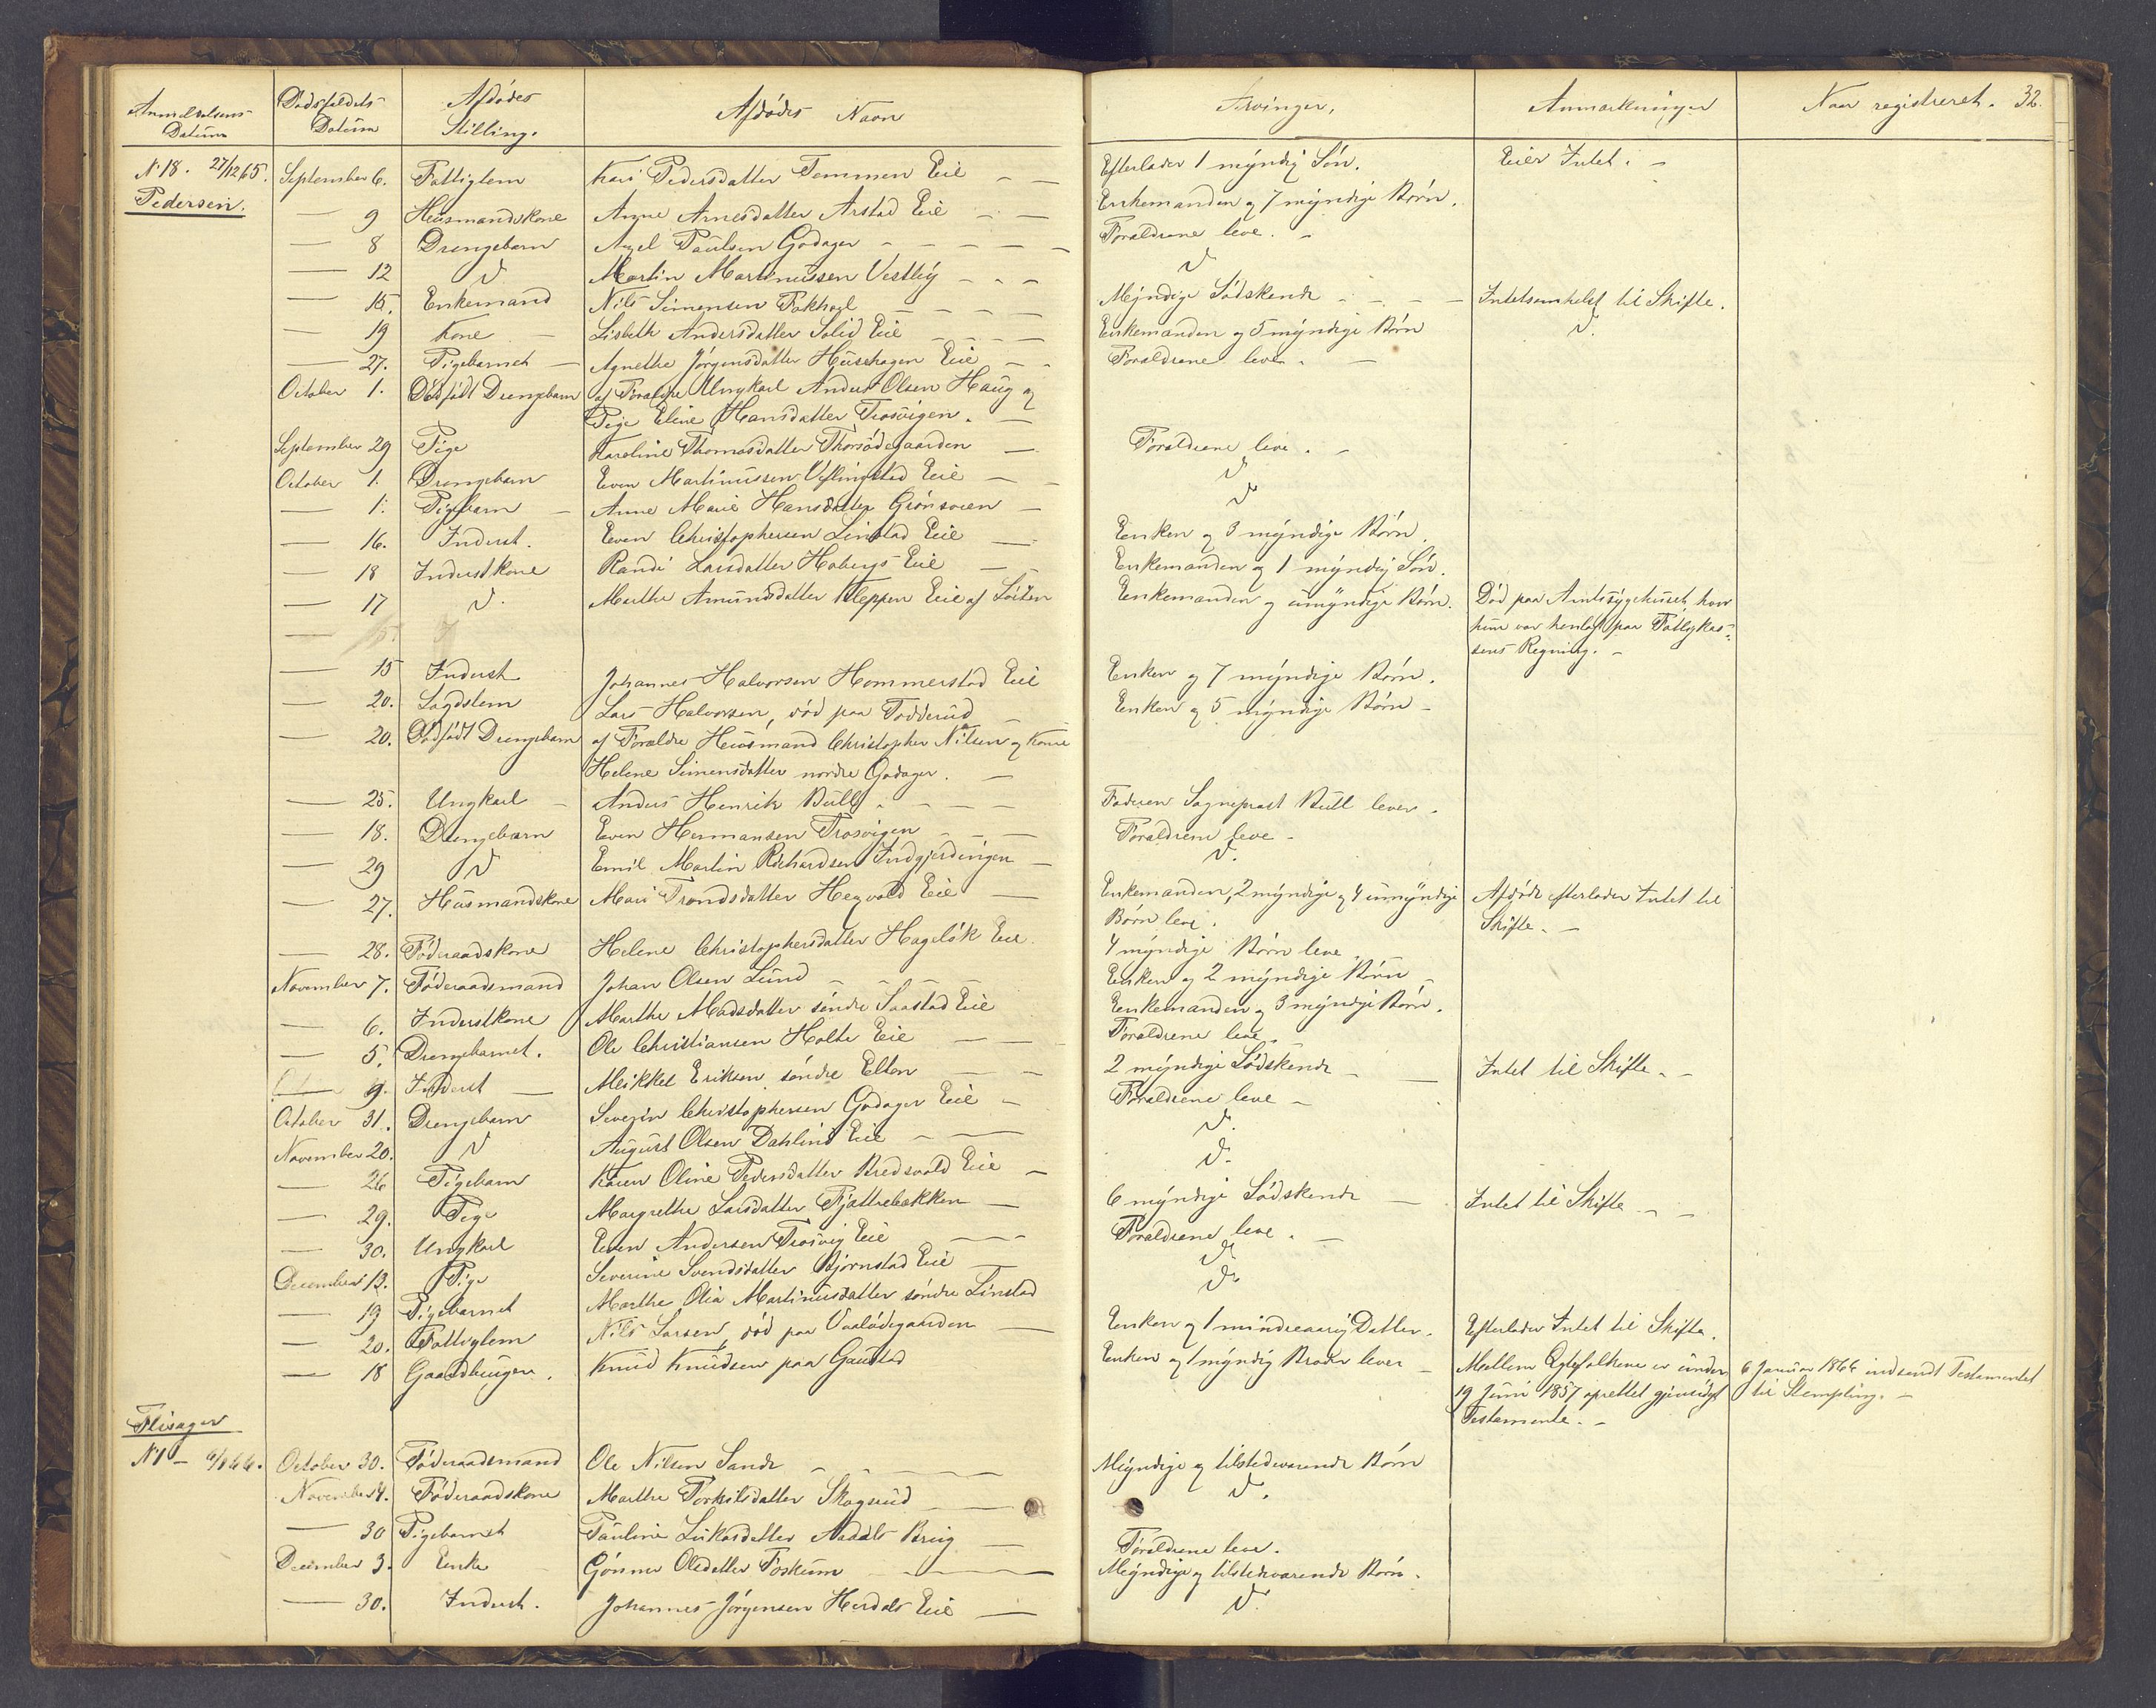 Anmeldelsens Datum | Dødsfaldets Datum | Afdødes Stilling. | Afdødes Navn | Arvinger, | Anmærkninger | Naar registreret. 32.
N. 18. 27/12 65. Pedersen. | September 6. | Fattiglem | Kari Pedersdatter Temmen Eie | Efterlader 1 myndig Søn. | Eier Intet.
— 9 | Huusmandskone | Anne Arnesdatter Arstad Eie | Enkemanden og 7 myndige Børn.
— 8 | Drengebarn | Axel Paulsen Godager | Forældrene leve.
— 12 | D | Martin Martinussen Vestby | D
— 15. | Enkemand | Nils Simensen | Myndige Sødskende | Intetsomhelst til Skifte.
— 19 | Kone | Lisbeth Andersdatter Solid Eie | Enkemanden og 5 myndige Børn | D.
— 27. | Pigebarnet | Agnethe Jørgensdatter Huusehagen Eie | Forældrene leve.
October 1. | Dødfødt Drengebarn | af Forældre Ungkarl Anders Olsen Haug og
Pige Eline Hansdatter Trosvigen.
September 29 | Pige | Karoline Thomasdatter Thorsødegaarden | Forældrene leve.
October 1. | Drengebarn | Even Martinussen Veflingstad Eie | D
— 1. | Pigebarn | Anne Marie Hansdatter Grønsveen | D
— 16. | Inderst. | Even Christophersen Linstad Eie | Enken og 3 myndige Børn.
— 18 | Inderstkone | Randi Larsdatter Hobergs Eie | Enkemanden og 1 myndig Søn.
— 17 | D. | Marthe Amundsdatter Kleppen Eie af Løiten | Enkemanden og umyndige Børn. | Død paa Amtssygehuset, hvor
hun var henlagt paa Fattigkas-
sens Regning.
— 15 | Inderst | Johannes Halvorsen Hommerstad Eie | Enken og 7 myndige Børn.
— 20. | Lægdslem | Lars Halvorsen, død paa Fodderud | Enken og 5 myndige Børn
— 20. | Dødfødt Drengebarn | af Forældre Huusmand Christopher Nilsen og Kone
Helene Simensdatter nordre Godager.
— 25. | Ungkarl | Anders Henrik Bull | Faderen Sogneprest Bull lever.
— 18. | Drengebarn | Even Hermansen Trosvigen | Forældrene leve
— 29 | D | Emil Martin Richardsen Indgjerdingen | D.
— 27. | Huusmandskone | Mari Trondsdatter Hegvold Eie | Enkemanden, 2 myndige og 4 umyndige | Afdøde efterlader Intet til
Børn leve. | Skifte.
— 28. | Føderaadskone | Helene Christophersdatter Hageløk Eie. | 4 myndige Børn leve
November 7. | Føderaadsmand | Johan Olsen Lund | Enken og 2 myndige Børn
— 6. | Inderstkone | Marthe Madsdatter søndre Saastad Eie | Enkemanden og 3 myndige Børn.
— 5. | Drengebarnet. | Ole Christiansen Holte Eie | Forældrene leve.
— 9. | Inderst | Mikkel Eriksen søndre Elton | 2 myndige Sødskende | Intet til Skifte.
October 31. | Drengebarn | Severin Christophersen Godager Eie | Forældrene leve
November 20. | D | August Olsen Dahlin Eie | D.
— 26 | Pigebarn | Karen Oline Pedersdatter Bredsvold Eie | D.
— 29. | Pige | Margrethe Larsdatter Fjøttrebækken | 6 myndige Sødskende | Intet til Skifte
— 30. | Ungkarl | Even Andersen Trosvig Eie | Forældrene leve.
December 13. | Pige | Severine Svendsdatter Bjørnstad Eie | D
— 19 | Pigebarnet | Marthe Olia Martinusdatter søndre Linstad | D
— 20. | Fattiglem | Nils Larsen, død paa Vaalødegaarden | Enken og 1 mindreaarig Datter. | Efterlader Intet til Skifte.
— 18 | Gaardbruger. | Knud Knudsen paa Gaustad | Enken og 1 myndig Broder lever | Mellem Ægtefolkene er under | 6 Januar 1866 indsendt Testamentet
19 Juni 1857 oprettet gjensidigt | til Stempling.
Testamente.
Flisager
N 1 — 6/1 66. | October 30. | Føderaadsmand | Ole Nilsen Sande | Myndige og tilstedeværende Børn
November 4. | Føderaadskone | Marthe Torkilsdatter Skogsrud | D.
— 30 | Pigebarnet | Pauline Lukasdatter Aadals Brug | Forældrene leve.
December 3. | Enke | Gønner Olsdatter Foskum | Myndige og tilstedeværende Børn.
— 30. | Inderst. | Johannes Jørgensen Herdals Eie | D.